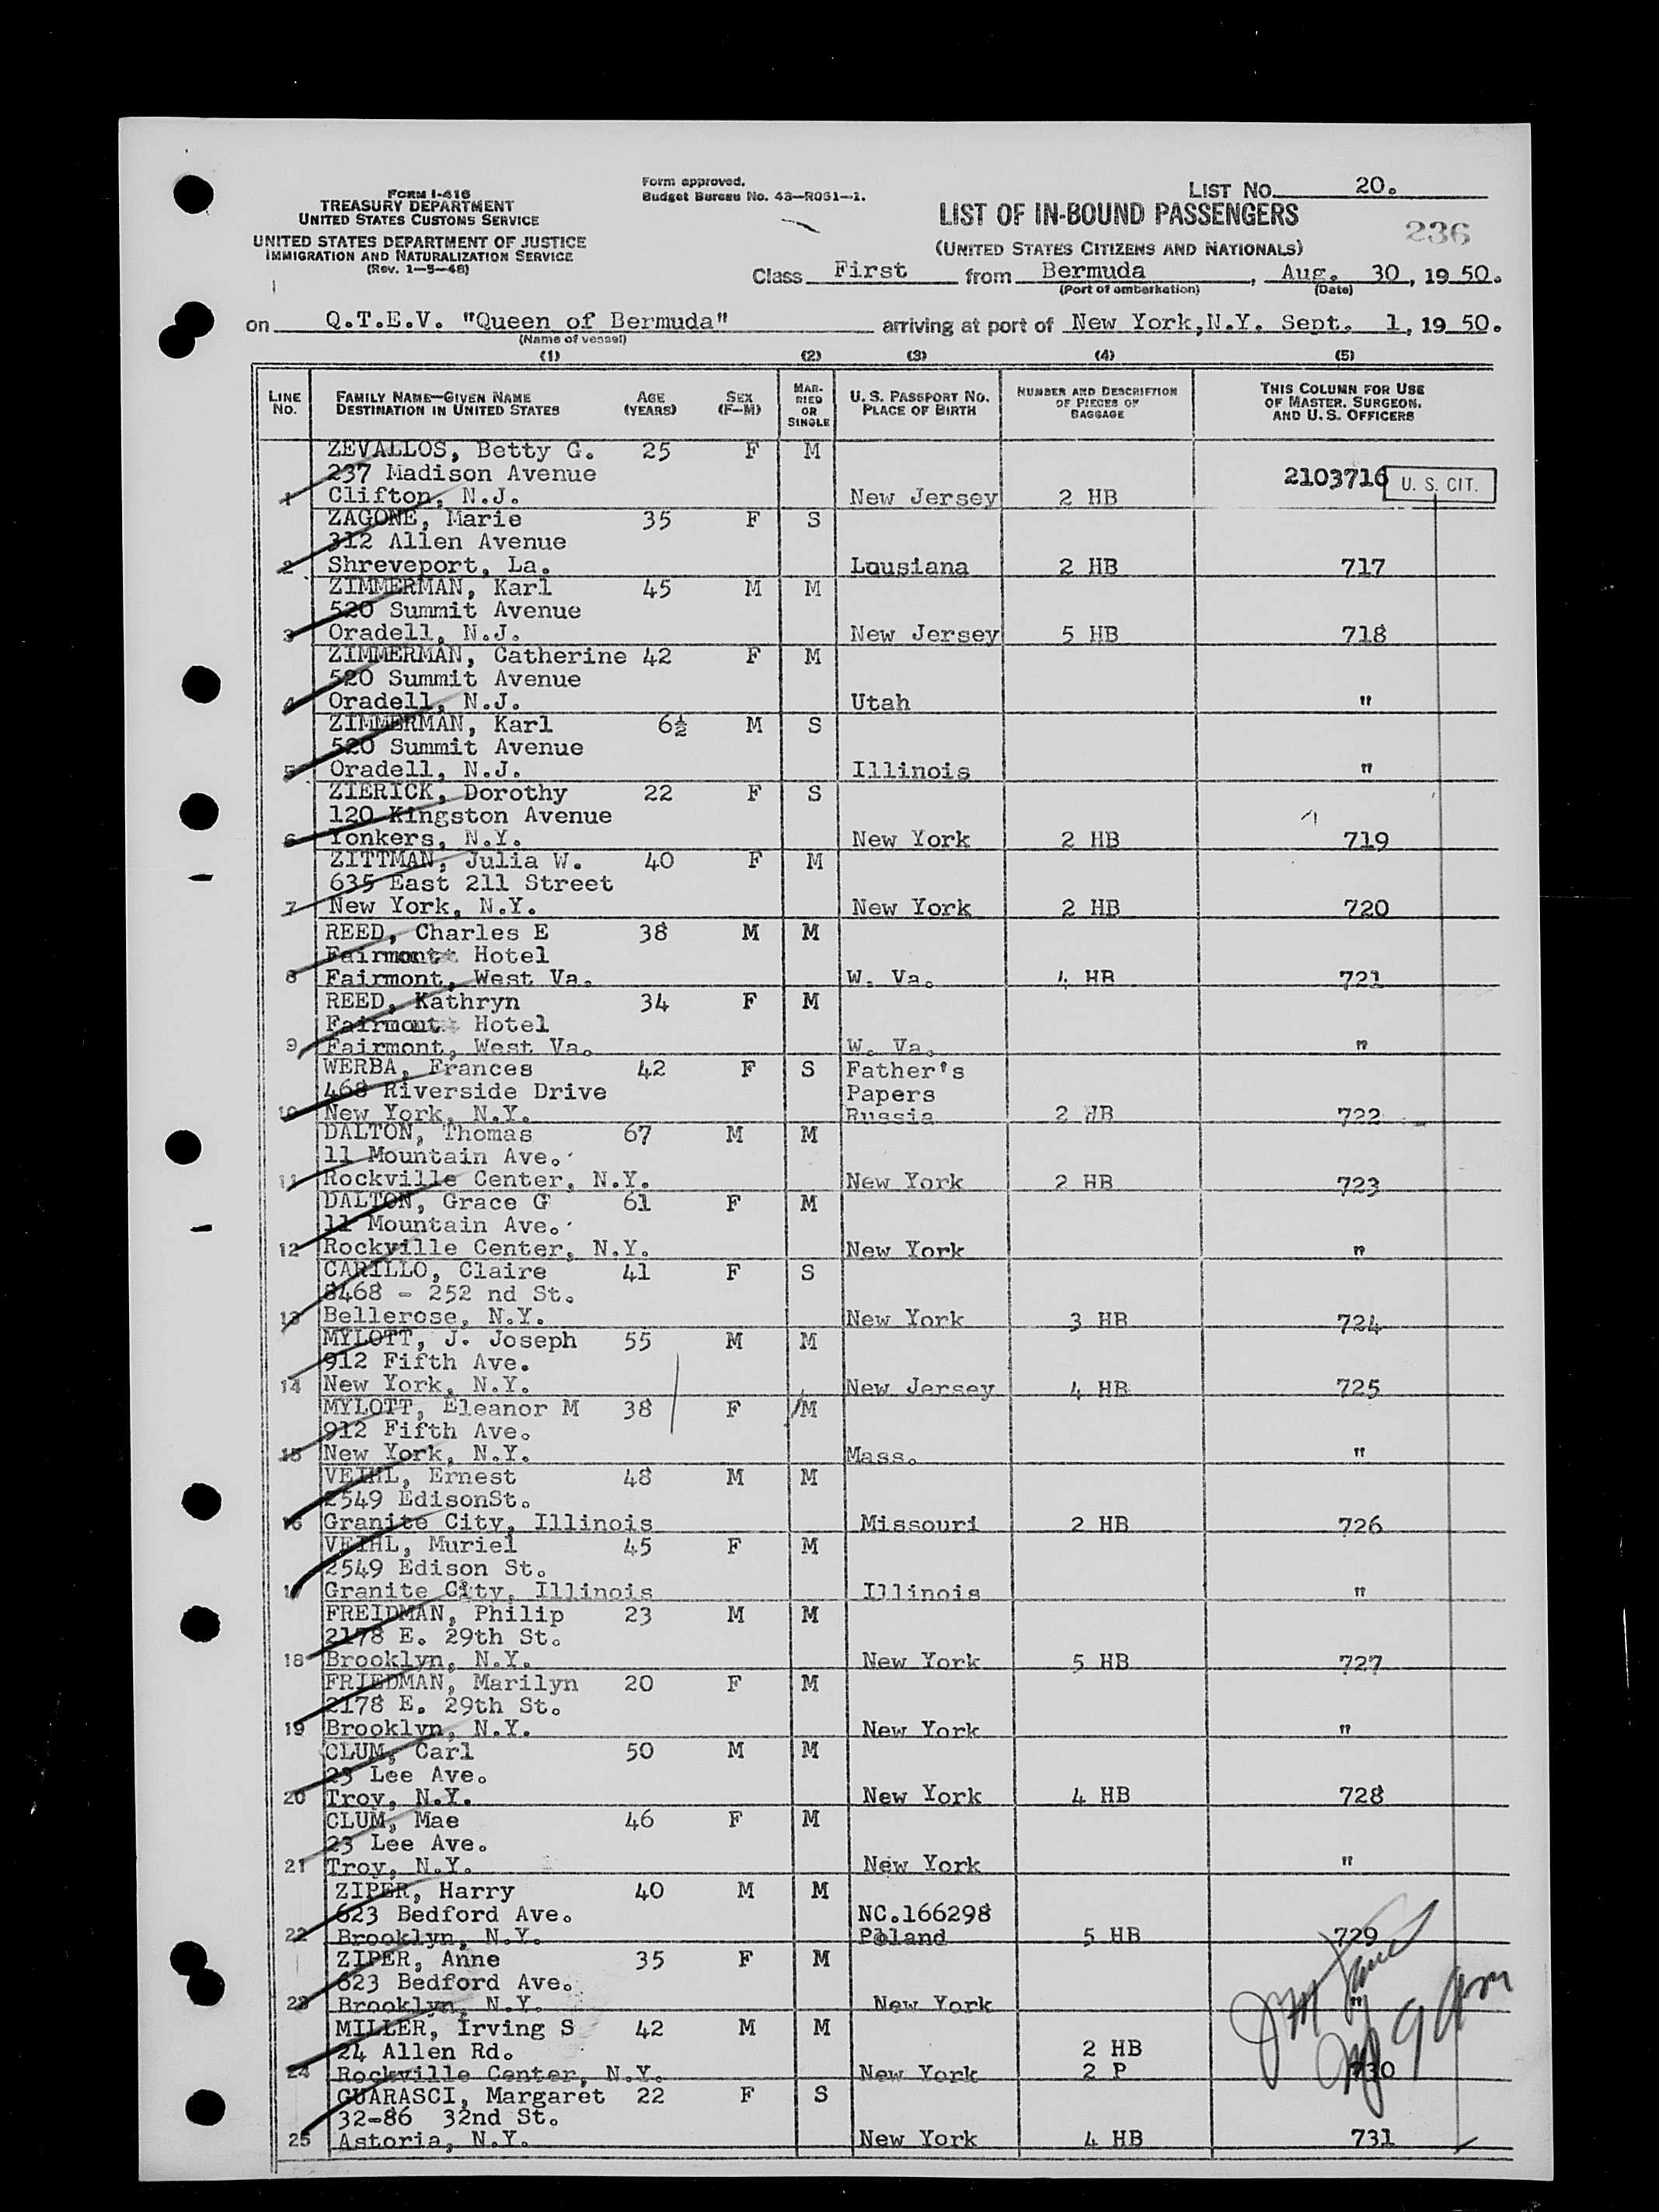 FORM I-416
TREASURY DEPARTMENT
UNITED STATES CUSTOMS SERVICE
UNITED STATES DEPARTMENT OF JUSTICE
IMMIGRATION AND NATURALIZATION SERVICE
(Rev. 1-5-48)
Form approved.
Budget Bureau No. 43-R051-1.
LIST NO. 20.
LIST OF IN-BOUND PASSENGERS
236
(UNITED STATES CITIZENS AND NATIONALS)
Class First from Bermuda, Aug. 30, 19 50.
(Port of embarkation) (Date)
on Q.T.E.V. "Queen of Bermuda" arriving at port of New York, N.Y. Sept. 1, 19 50.
(Name of vessel)
(1) (2) (3) (4) (5)
LINE NO. FAMILY NAME—GIVEN NAME DESTINATION IN UNITED STATES AGE (YEARS) SEX (F-M) MARRIED OR SINGLE U. S. PASSPORT NO. PLACE OF BIRTH NUMBER AND DESCRIPTION OF PIECES OF BAGGAGE THIS COLUMN FOR USE OF MASTER, SURGEON, AND U. S. OFFICERS
ZEVALLOS, Betty G. 25 F M
237 Madison Avenue 2103716 U. S. CIT.
1 Clifton, N.J. New Jersey 2 HB
ZAGONE, Marie 35 F S
312 Allen Avenue
2 Shreveport, La. Lousiana 2 HB 717
ZIMMERMAN, Karl 45 M M
520 Summit Avenue
3 Oradell, N.J. New Jersey 5 HB 718
ZIMMERMAN, Catherine 42 F M
520 Summit Avenue
4 Oradell, N.J. Utah "
ZIMMERMAN, Karl 6½ M S
520 Summit Avenue
5 Oradell, N.J. Illinois "
ZIERICK, Dorothy 22 F S
120 Kingston Avenue
6 Yonkers, N.Y. New York 2 HB 719
ZITTMAN, Julia W. 40 F M
635 East 211 Street
7 New York, N.Y. New York 2 HB 720
REED, Charles E 38 M M
Fairmont Hotel
8 Fairmont, West Va. W. Va. 4 HB 721
REED, Kathryn 34 F M
Fairmont Hotel
9 Fairmont, West Va. W. Va. "
WERBA, Frances 42 F S Father's
468 Riverside Drive Papers
10 New York, N.Y. Russia 2 HB 722
DALTON, Thomas 67 M M
11 Mountain Ave.
11 Rockville Center, N.Y. New York 2 HB 723
DALTON, Grace G 61 F M
11 Mountain Ave.
12 Rockville Center, N.Y. New York "
CARILLO, Claire 41 F S
8468 - 252 nd St.
13 Bellerose, N.Y. New York 3 HB 724
MYLOTT, J. Joseph 55 M M
912 Fifth Ave.
14 New York, N.Y. New Jersey 4 HB 725
MYLOTT, Eleanor M 38 F M
912 Fifth Ave.
15 New York, N.Y. Mass. "
VEIHL, Ernest 48 M M
2549 EdisonSt.
16 Granite City, Illinois Missouri 2 HB 726
VEIHL, Muriel 45 F M
2549 Edison St.
17 Granite City, Illinois Illinois "
FREIDMAN, Philip 23 M M
2178 E. 29th St.
18 Brooklyn, N.Y. New York 5 HB 727
FRIEDMAN, Marilyn 20 F M
2178 E. 29th St.
19 Brooklyn, N.Y. New York "
CLUM, Carl 50 M M
23 Lee Ave.
20 Troy, N.Y. New York 4 HB 728
CLUM, Mae 46 F M
23 Lee Ave.
21 Troy, N.Y. New York "
ZIPER, Harry 40 M M
623 Bedford Ave. NC.166298
22 Brooklyn, N.Y. Poland 5 HB 729
ZIPER, Anne 35 F M
623 Bedford Ave.
23 Brooklyn, N.Y. New York "
MILLER, Irving S 42 M M
24 Allen Rd. 2 HB
24 Rockville Center, N.Y. New York 2 P 730
GUARASCI, Margaret 22 F S
32-86 32nd St.
25 Astoria, N.Y. New York 4 HB 731